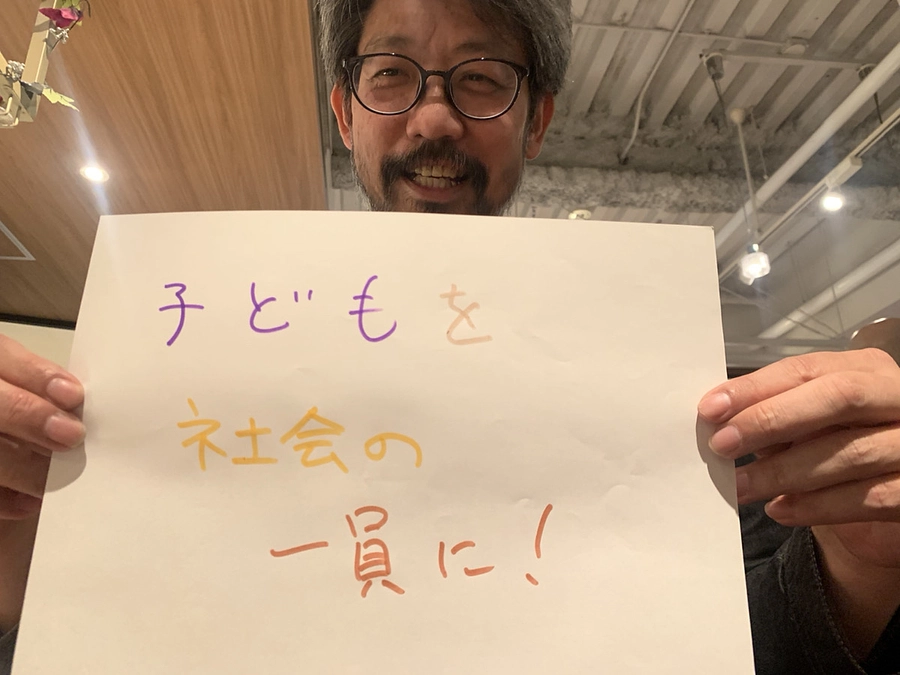 子どもを
社会の
一員に!